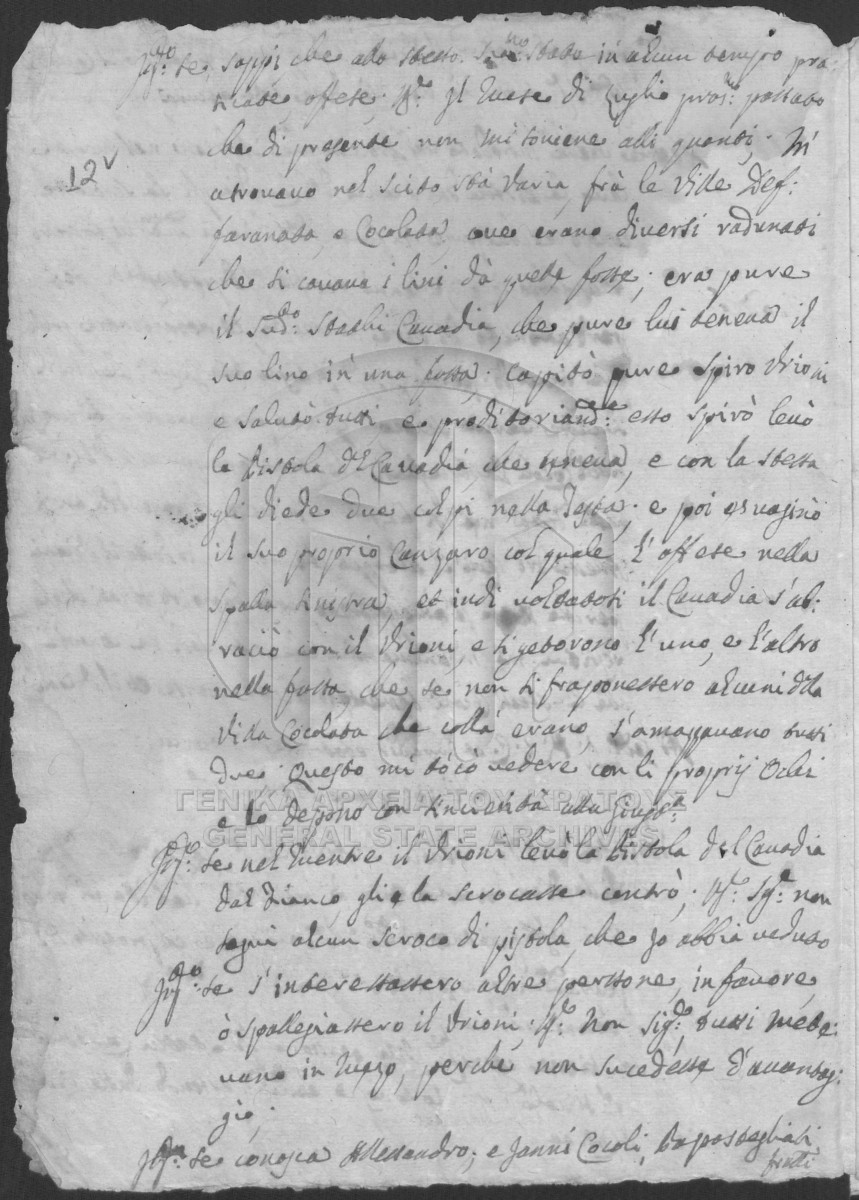 Int.º se sappi, che allo stesso sijno stato in alcun tempo pra=
ticate offese; R.ª Il Mese di Luglio pros.º passato
che di presente non mi soviene alli quanti; Mi
12
atrovavo nel scito stà Varia, frà le Ville Def:
faranata, e Cocolata, ove erano diversi radunati
che si cavava i lini dà quelle fosse; era pure
il Sud.º Stathi Cavadia, che pure lui teneva il
suo lino in una fossa; capitò pure Spiro Vrioni
e salutò tutti, e proditoriam.te esso Spirò levò
la Pistola del Cavadia, che teneva, e con la stessa
gli diede due colpi nella Testa; e poi esvaginò
il suo proprio Canzaro col quale l'offese nella
spalla sinistra, et indi voltatosi il Cavadia s'ab:
raciò con il Vrioni, e si getorono l'uno, e l'altro
nella fossa, che se non si fraponessero alcuni d.lla
Villa Cocolata che collà erano, s'amazzavano tutti
due. Questo mi tocò vedere con li proprij Ochi
e lo depono con sincerità alla Giust.ª
ΓΕΝΙΚΑ ΑΡΧΕΙΑ ΤΟΥ ΚΡΑΤΟΥΣ
GENERAL STATE ARCHIVES
Int.º se nel Mentre il Vrioni levò la Pistola del Cavadia
dal Fianco, gli e la scrocasse contrò; R.ª Sig.r non
seguì alcun scroco di pistola, che Io abbia veduto
Int.º se s'interessassero altre perssone, in favore,
ò spallegiassero il Vrioni; R.ª Non Sig.r, tutti mete:
vano in Mezzo, perchè non sucedesse d'avantag:
gio;
Int.º se conosca Allessandro, e Janni Cocoli,
fratti